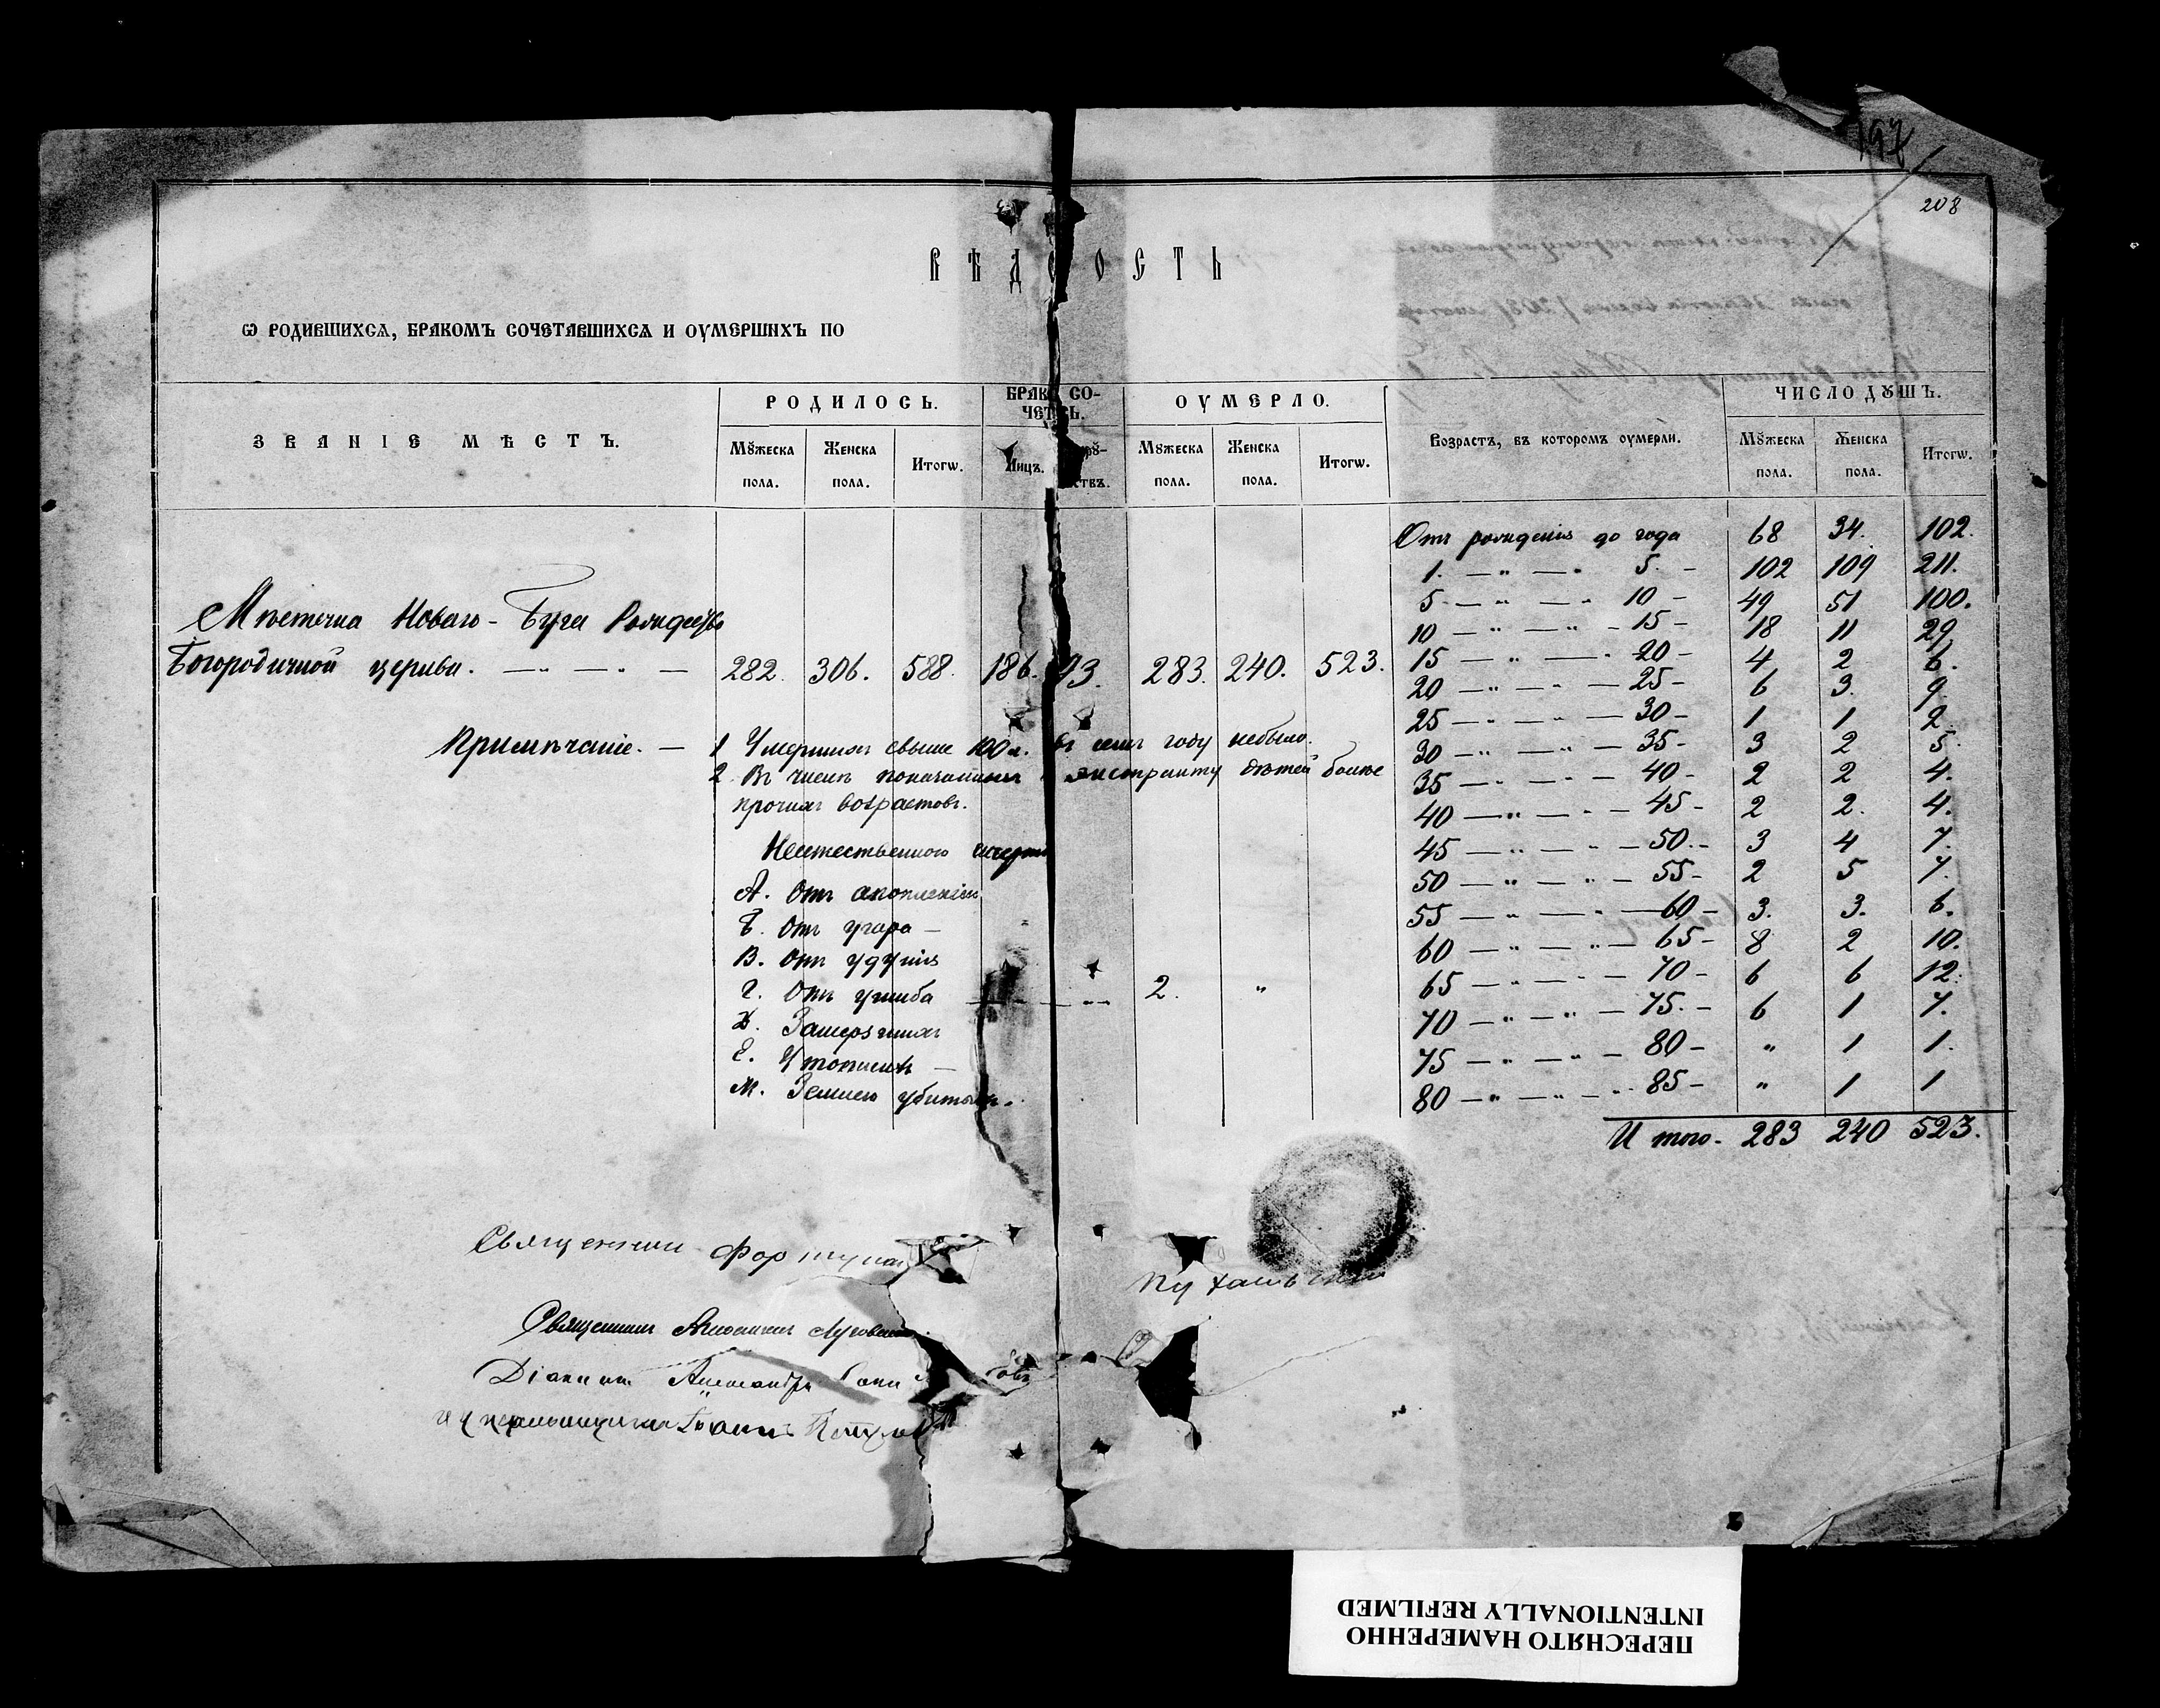 197
208
ВѢДОСТЬ
Ѡ РОДИВШИХСѦ, БРАКОМЪ СОЧЕТАВШИХСѦ И ОУМЕРШИХЪ ПО
ЗВАНІЕ МѢСТЪ.
РОДИЛОСЬ.
БРАКО СО-
ЧЕТ Ь.
ОУМЕРЛО.
Возрастъ, въ которомъ оумерли.
ЧИСЛО ДꙊШЪ.
Мꙋжеска пола.
Женска пола.
Итогѡ.
Лицъ.
ствъ.
Мꙋжеска пола.
Женска пола.
Итогѡ.
Мꙋжеска пола.
Женска пола.
Итогѡ.
Мѣстечка Новаго-Буга Рождество
Богородичной церкви. — „ — „ — 282. 306. 588. 186. 93. 283. 240. 523.
Примѣчаніе. — 1 Умершихъ свыше 100 л. въ семъ году небыло.
2 Въ числѣ показанныхъ экстракту дѣтей болѣе
прочихъ возрастовъ.
Неестественною смертію
А. Отъ
Б. Отъ угара —
В. Отъ удушія
Г. Отъ ушиба — „ 2. „
Д. Замерзшихъ
Е. Утопшихъ —
Ж. Землею убитыхъ.
Отъ рожденія до года 68 34. 102.
1. — „ — „ 5. — 102 109 211.
5 — „ — „ 10 — 49 51 100.
10 — „ — „ — 15 — 18 11 29
15 — „ — „ 20 — 4 2 6.
20 — „ — „ — 25 — 6 3. 9.
25 — „ — „ — 30 — 1 1 2
30 — „ — „ — 35 — 3 2 5.
35 — „ — „ — 40 — 2 2 4.
40 — „ — „ — 45 — 2 2. 4.
45 — „ — „ — 50. — 3 4 7.
50 — „ — „ — 55 — 2 5 7.
55 — „ — „ — 60 — 3. 3. 6.
60 — „ — „ — 65 — 8 2 10.
65 — „ — „ — 70 — 6 6 12.
70 — „ — „ — 75. — 6 1 7.
75 — „ — „ — 80 — „ 1 1.
80 — „ — „ — „ 85 — „ 1 1
Итого. 283 240 523.
Священникъ Фортунат
Священникъ
Діаконъ Александръ
Іоаннъ
ПЕРЕСНЯТО НАМЕРЕННО
INTENTIONALLY REFILMED